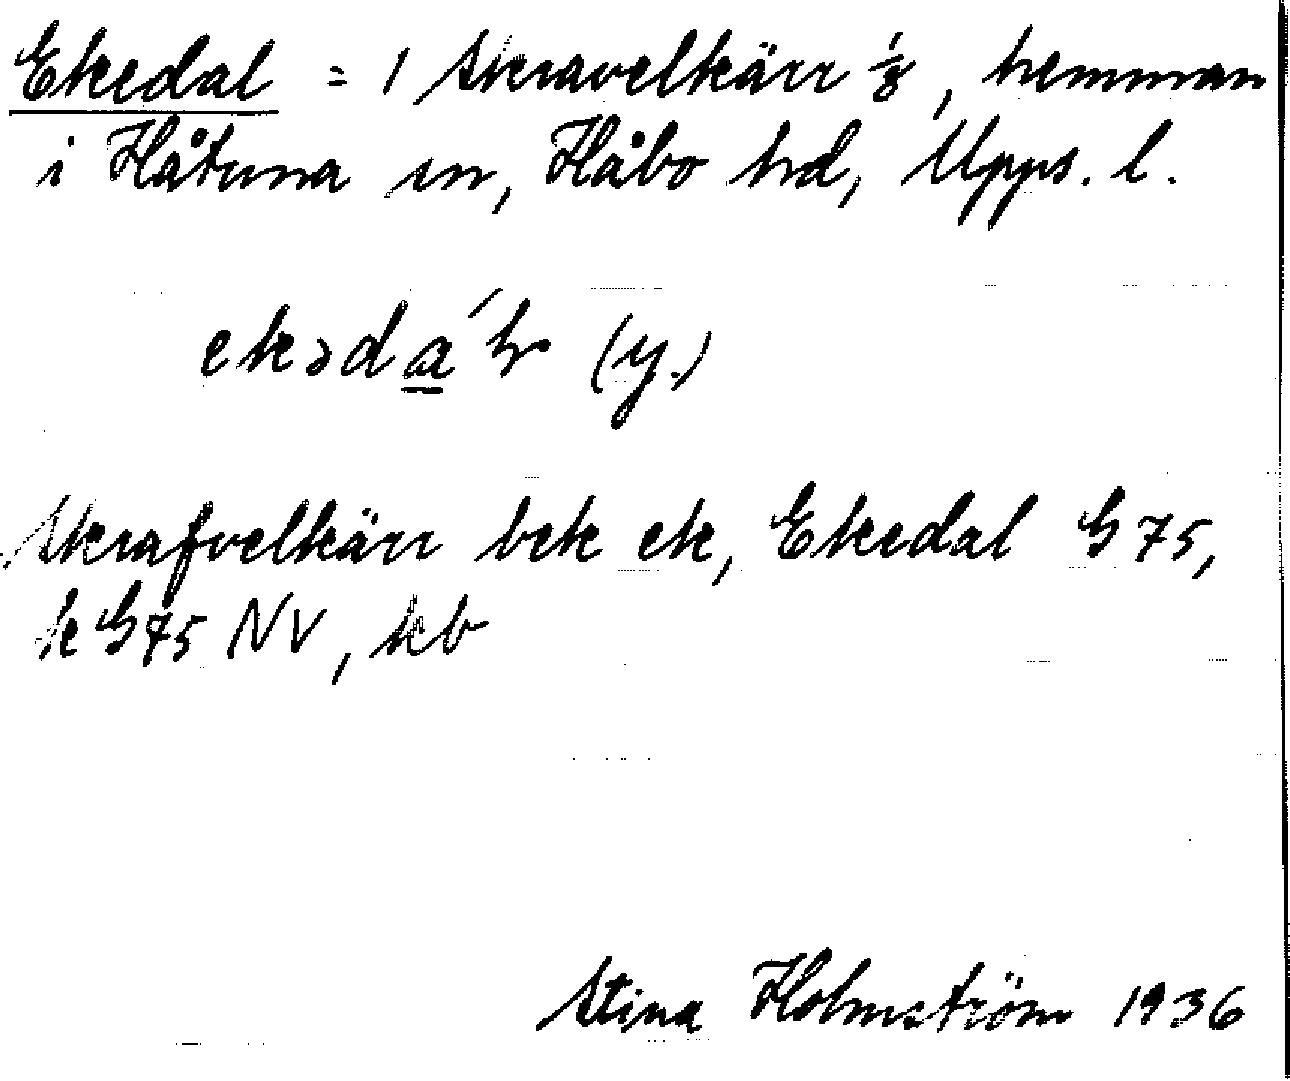 Ekedal = 1 Skravelkärr 1/8, hemman
i Håtuna sn, Håbo hd, Upps. l.
(y.)
Skrafvelkärr bek ek, Ekedal G 75,
k G 75 NV, kb
Stina Holmström 1936